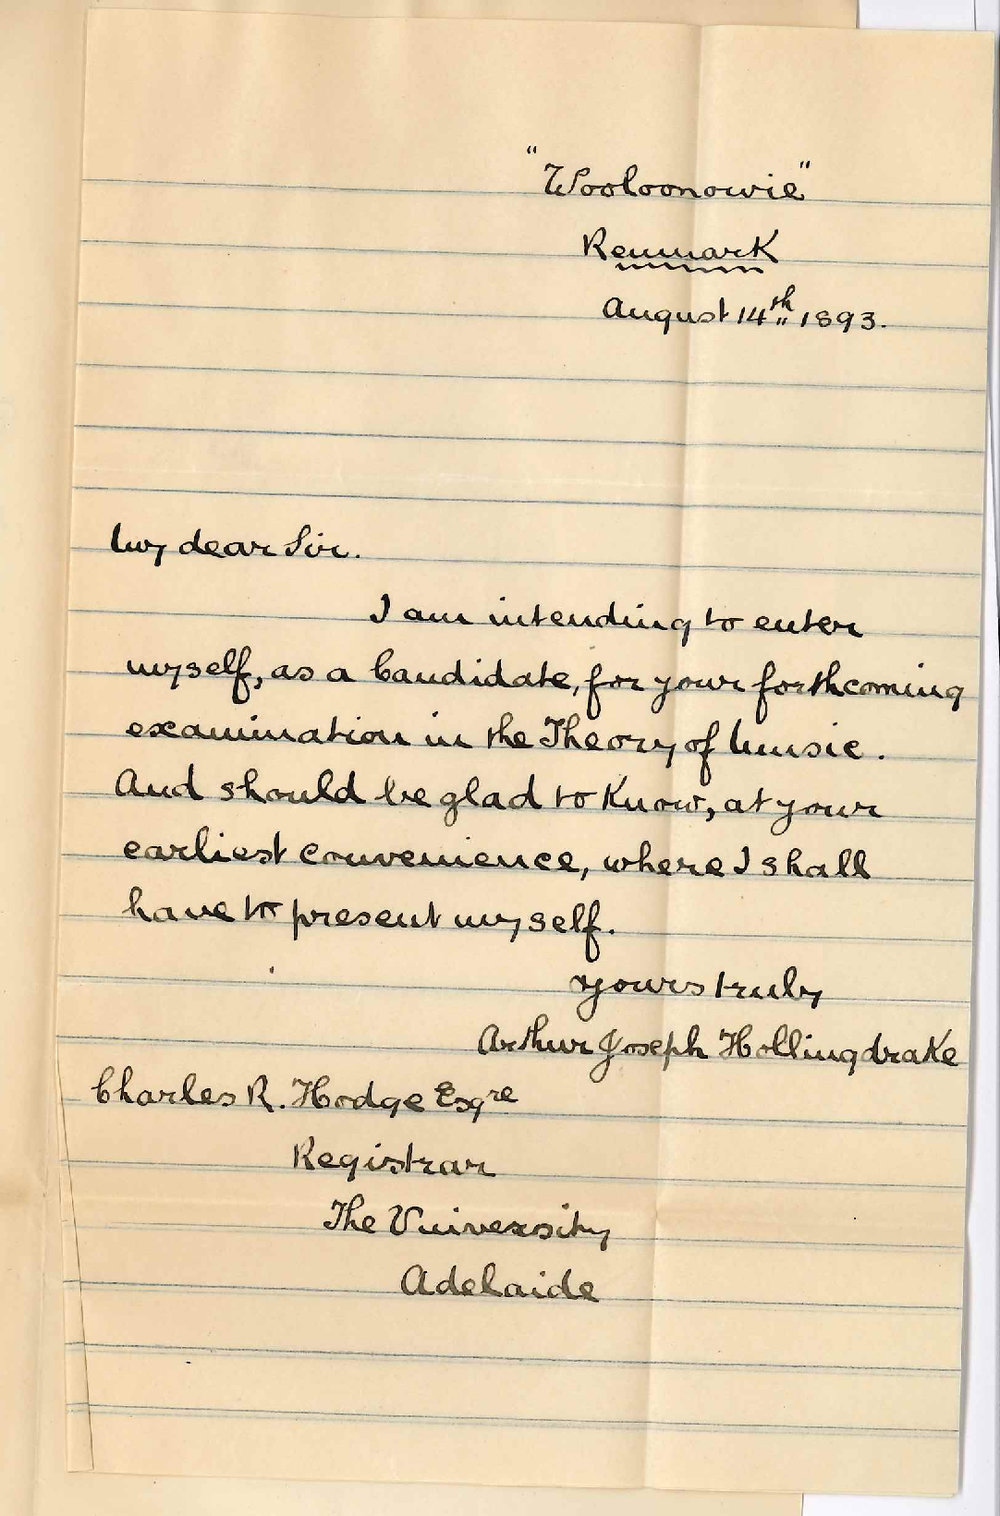 "Wooloonowie"
Renmark
August 14th 1893.
My dear Sir.
I am intending to enter
myself, as a Candidate, for your forthcoming
examination in the Theory of Music.
And should be glad to know, at your
earliest convenience, where I shall
have to present myself.
yours truly
Arthur Joseph Hollingdrake
Charles R. Hodge Esqre
Registrar
The University
Adelaide